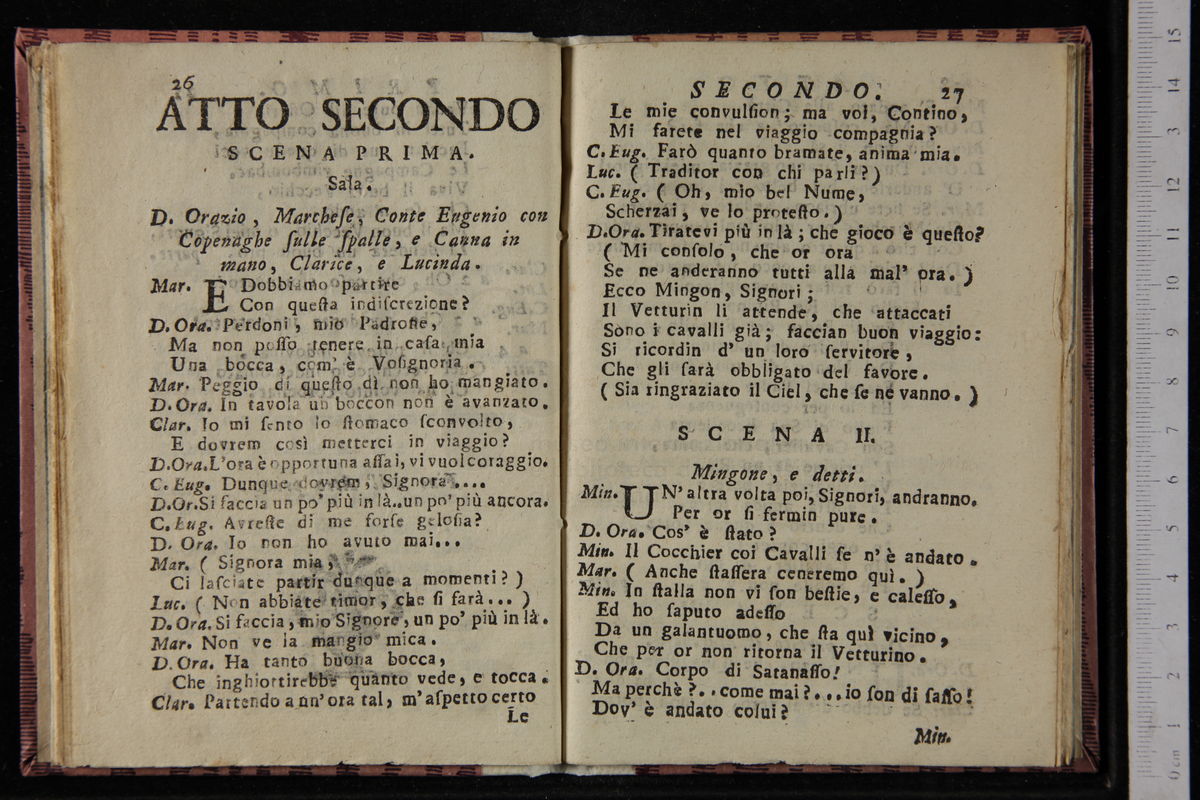 26
ATTO SECONDO
SCENA PRIMA.
Sala.
D. Orazio, Marcheſe, Conte Eugenio con
Copenaghe ſulle ſpalle, e Canna in
mano, Clarice, e Lucinda.
Mar. E Dobbiamo partire
Con queſta indiſcrezione?
D. Ora. Perdoni, mio Padrone,
Ma non poſſo tenere in caſa mia
Una bocca, com' è Voſignoria.
Mar. Peggio di queſto dì non ho mangiato.
D. Ora. In tavola un boccon non è avanzato.
Clar. Io mi ſento lo ſtomaco ſconvolto,
E dovrem così metterci in viaggio?
D.Ora. L'ora è opportuna aſſai, vi vuol coraggio.
C. Eug. Dunque dovrem, Signora....
D.Or. Si faccia un po' più in là..un po' più ancora.
C. Eug. Avreſte di me forſe geloſia?
D. Ora. Io non ho avuto mai...
Mar. ( Signora mia,
Ci laſciate partir dunque a momenti? )
Luc. ( Non abbiate timor, che ſi farà... )
D. Ora. Si faccia, mio Signore, un po' più in là.
Mar. Non ve la mangio mica.
D. Ora. Ha tanto buona bocca,
Che inghiottirebbe quanto vede, e tocca.
Clar. Partendo a un' ora tal, m'aſpetto certo
Le
SECONDO. 27
Le mie convulſion; ma voi, Contino,
Mi farete nel viaggio compagnia?
C. Eug. Farò quanto bramate, anima mia.
Luc. ( Traditor con chi parli? )
C. Eug. ( Oh, mio bel Nume,
Scherzai, ve lo proteſto. )
D.Ora. Tiratevi più in là; che gioco è queſto?
( Mi conſolo, che or ora
Se ne anderanno tutti alla mal' ora. )
Ecco Mingon, Signori;
Il Vetturin li attende, che attaccati
Sono i cavalli già; faccian buon viaggio:
Si ricordin d' un loro ſervitore,
Che gli ſarà obbligato del favore.
( Sia ringraziato il Ciel, che ſe ne vanno. )
SCENA II.
Mingone, e detti.
Min. UN' altra volta poi, Signori, andranno.
Per or ſi fermin pure.
D. Ora. Cos' è ſtato?
Min. Il Cocchier coi Cavalli ſe n' è andato.
Mar. ( Anche ſtaſſera ceneremo quì. )
Min. In ſtalla non vi ſon beſtie, e caleſſo,
Ed ho ſaputo adeſſo
Da un galantuomo, che ſta quì vicino,
Che per or non ritorna il Vetturino.
D. Ora. Corpo di Satanaſſo!
Ma perchè?..come mai?...io ſon di ſaſſo!
Dov' è andato colui?
Min.